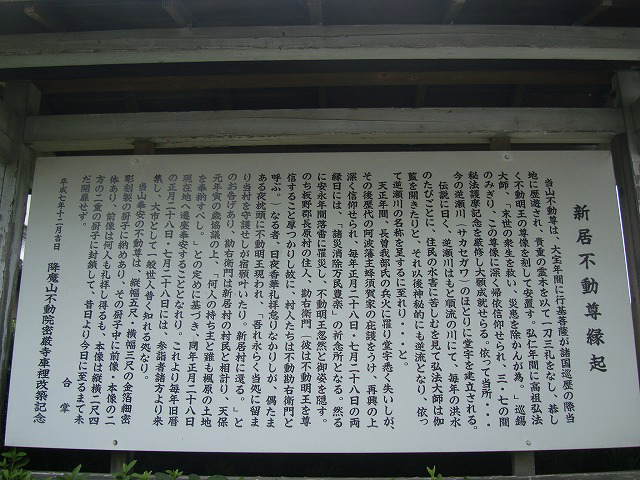 新居不動尊縁起
当山不動尊は、大宝年間に行基菩薩が諸国巡歴の際当
地に歴遊され、貴重の霊木を以て一刀三礼をなし、恭し
く不動明王の尊像を刻して安置す。弘仁年間に高祖弘法
大師、「末世の衆生を救い、災患を除かんが為。」巡錫
のみぎり、この尊像に深く帰依信仰せられ、三・七の間
秘法護摩記念を厳修し大願成就せらる。依って当所・・・
今の逆瀬川(サカセガワ)のほとりに堂宇を建立される。
伝説に曰く、逆瀬川はもと順流の川にて、毎年の洪水
のたびごとに、住民の水害に苦しむを見て弘法大師は伽
藍を開きたりと、それ以後神秘的にも逆流となり、依っ
て逆瀬川の名称を呈するに至れり・・・と。
天正年間、長曽我部氏の兵火に罹り堂宇悉く失いしが、
その後歴代の阿波藩主蜂須賀家の庇護をうけ、再興の上
深く信仰せられ、毎年正月二十八日・七月二十八日の両
縁日には、「諸災消除万民豊楽」の祈念所となる。然る
に安永年間落雷に罹災し、不動明王忽然と御姿を隠す。
のち板野郡長原村の住人、勘右衛門(彼は不動明王を尊
信すること厚つかりし故に、村人たちは不動勘右衛門と
呼ぶ。)なる者、日夜香華礼拝怠りなかりしが、偶たま
ある夜枕頭に不動明王現われ、「吾れ永らく当処に留ま
り当村を守護せしが宿願叶いたり。新居村に還る。」と
のお告げあり、勘右衛門は新居村の村民と相計り、天保
元年寅の歳協議の上、「何人の持ち主と雖も楓原の土地
を奉納すべし。」との定めに基づき、同年正月二十八日
現在地へ遷座奉安することとなれり。これより毎年旧暦
の正月二十八日・七月二十八日には、参詣者諸方より来
集し、大市として一般世人普く知れる処なり。
当山奉安の不動尊は、縦幅五尺、横幅三尺の金箔細密
彫刻製の厨子に納めあり、その厨子中に前像・本像の二
体あり、前像は何人も礼拝し得るも、本像は縦横二尺四
方の二重の厨子に封鎖して、昔日より今日に至るまで未
だ開扉せず。
合掌
平成七年十二月吉日 降魔山不動院密厳寺車裡改築記念